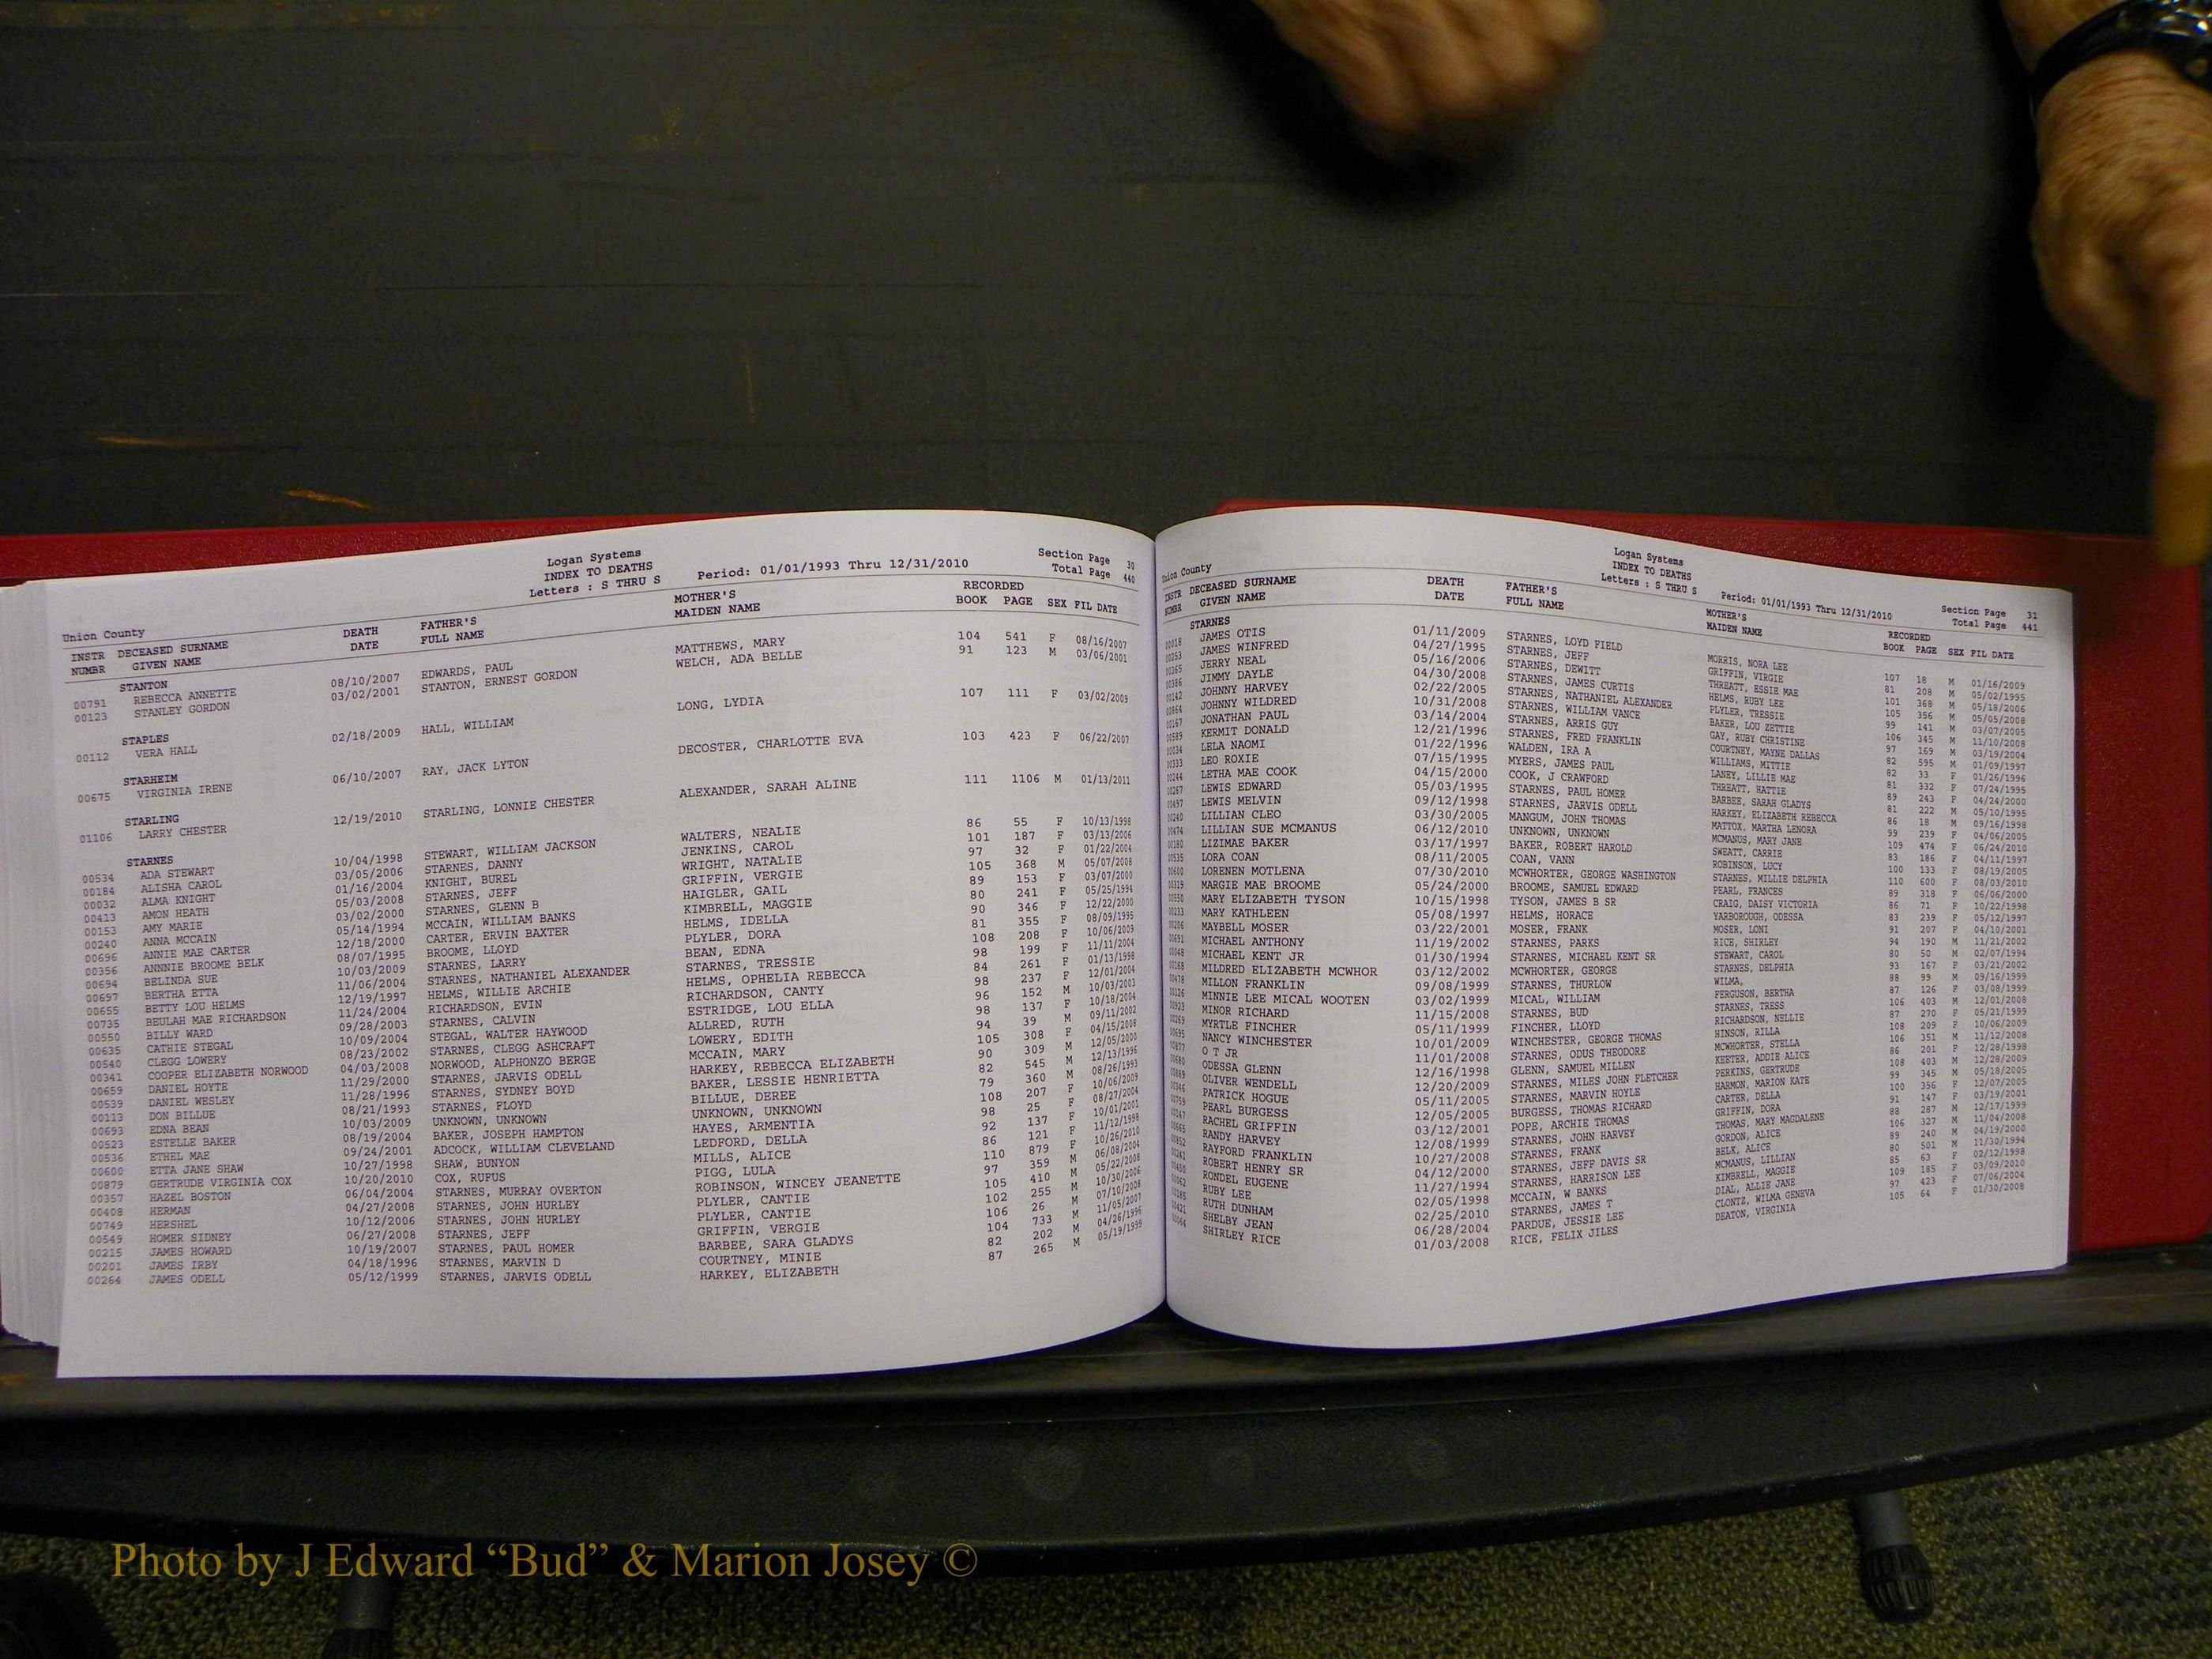 Union County
Logan Systems
INDEX TO DEATHS
Letters : S THRU S
Period: 01/01/1993 Thru 12/31/2010
Section Page 30
Total Page 440
INSTR DECEASED SURNAME DEATH FATHER'S MOTHER'S RECORDED
NUMBR GIVEN NAME DATE FULL NAME MAIDEN NAME BOOK PAGE SEX FIL DATE
STANTON
00791 REBECCA ANNETTE 08/10/2007 EDWARDS, PAUL MATTHEWS, MARY 104 541 F 08/16/2007
00123 STANLEY GORDON 03/02/2001 STANTON, ERNEST GORDON WELCH, ADA BELLE 91 123 M 03/06/2001
STAPLES
00112 VERA HALL 02/18/2009 HALL, WILLIAM LONG, LYDIA 107 111 F 03/02/2009
STARHEIM
00675 VIRGINIA IRENE 06/10/2007 RAY, JACK LYTON DECOSTER, CHARLOTTE EVA 103 423 F 06/22/2007
STARLING
01106 LARRY CHESTER 12/19/2010 STARLING, LONNIE CHESTER ALEXANDER, SARAH ALINE 111 1106 M 01/13/2011
STARNES
00534 ADA STEWART 10/04/1998 STEWART, WILLIAM JACKSON WALTERS, NEALIE 86 55 F 10/13/1998
00184 ALISHA CAROL 03/05/2006 STARNES, DANNY JENKINS, CAROL 101 187 F 03/13/2006
00032 ALMA KNIGHT 01/16/2004 KNIGHT, BUREL WRIGHT, NATALIE 97 32 F 01/22/2004
00413 AMON HEATH 05/03/2008 STARNES, JEFF GRIFFIN, VERGIE 105 368 M 05/07/2008
00153 AMY MARIE 03/02/2000 STARNES, GLENN B HAIGLER, GAIL 89 153 F 03/07/2000
00240 ANNA MCCAIN 05/14/1994 MCCAIN, WILLIAM BANKS KIMBRELL, MAGGIE 80 241 F 05/25/1994
00696 ANNIE MAE CARTER 12/18/2000 CARTER, ERVIN BAXTER HELMS, IDELLA 90 346 F 12/22/2000
00356 ANNNIE BROOME BELK 08/07/1995 BROOME, LLOYD PLYLER, DORA 81 355 F 08/09/1995
00694 BELINDA SUE 10/03/2009 STARNES, LARRY BEAN, EDNA 108 208 F 10/06/2009
00697 BERTHA ETTA 11/06/2004 STARNES, NATHANIEL ALEXANDER STARNES, TRESSIE 98 199 F 11/11/2004
00655 BETTY LOU HELMS 12/19/1997 HELMS, WILLIE ARCHIE HELMS, OPHELIA REBECCA 84 261 F 01/13/1998
00735 BEULAH MAE RICHARDSON 11/24/2004 RICHARDSON, EVIN RICHARDSON, CANTY 98 237 F 12/01/2004
00550 BILLY WARD 09/28/2003 STARNES, CALVIN ESTRIDGE, LOU ELLA 96 152 M 10/03/2003
00635 CATHIE STEGAL 10/09/2004 STEGAL, WALTER HAYWOOD ALLRED, RUTH 98 137 F 10/18/2004
00540 CLEGG LOWERY 08/23/2002 STARNES, CLEGG ASHCRAFT LOWERY, EDITH 94 39 M 09/11/2002
00341 COOPER ELIZABETH NORWOOD 04/03/2008 NORWOOD, ALPHONZO BERGE MCCAIN, MARY 105 308 F 04/15/2008
00659 DANIEL HOYTE 11/29/2000 STARNES, JARVIS ODELL HARKEY, REBECCA ELIZABETH 90 309 M 12/05/2000
00539 DANIEL WESLEY 11/28/1996 STARNES, SYDNEY BOYD BAKER, LESSIE HENRIETTA 82 545 M 12/13/1996
00113 DON BILLUE 08/21/1993 STARNES, FLOYD BILLUE, DEREE 79 360 M 08/26/1993
00693 EDNA BEAN 10/03/2009 UNKNOWN, UNKNOWN UNKNOWN, UNKNOWN 108 207 F 10/06/2009
00523 ESTELLE BAKER 08/19/2004 BAKER, JOSEPH HAMPTON HAYES, ARMENTIA 98 25 F 08/27/2004
00536 ETHEL MAE 09/24/2001 ADCOCK, WILLIAM CLEVELAND LEDFORD, DELLA 92 137 F 10/01/2001
00600 ETTA JANE SHAW 10/27/1998 SHAW, BUNYON MILLS, ALICE 86 121 F 11/12/1998
00879 GERTRUDE VIRGINIA COX 10/20/2010 COX, RUFUS PIGG, LULA 110 879 F 10/26/2010
00357 HAZEL BOSTON 06/04/2004 STARNES, MURRAY OVERTON ROBINSON, WINCEY JEANETTE 97 359 M 06/08/2004
00408 HERMAN 04/27/2008 STARNES, JOHN HURLEY PLYLER, CANTIE 105 410 M 05/22/2008
00749 HERSHEL 10/12/2006 STARNES, JOHN HURLEY PLYLER, CANTIE 102 255 M 10/30/2006
00549 HOMER SIDNEY 06/27/2008 STARNES, JEFF GRIFFIN, VERGIE 106 26 M 07/10/2008
00215 JAMES HOWARD 10/19/2007 STARNES, PAUL HOMER BARBEE, SARA GLADYS 104 733 M 11/05/2007
00201 JAMES IRBY 04/18/1996 STARNES, MARVIN D COURTNEY, MINIE 82 202 M 04/26/1996
00264 JAMES ODELL 05/12/1999 STARNES, JARVIS ODELL HARKEY, ELIZABETH 87 265 M 05/19/1999
Union County
Logan Systems
INDEX TO DEATHS
Letters : S THRU S
Period: 01/01/1993 Thru 12/31/2010
Section Page 31
Total Page 441
INSTR DECEASED SURNAME DEATH FATHER'S MOTHER'S RECORDED
NUMBR GIVEN NAME DATE FULL NAME MAIDEN NAME BOOK PAGE SEX FIL DATE
STARNES
JAMES OTIS 01/11/2009 STARNES, LOYD FIELD MORRIS, NORA LEE 107 18 M 01/16/2009
JAMES WINFRED 04/27/1995 STARNES, JEFF GRIFFIN, VIRGIE 81 208 M 05/02/1995
JERRY NEAL 05/16/2006 STARNES, DEWITT THREATT, ESSIE MAE 101 368 M 05/18/2006
JIMMY DAYLE 04/30/2008 STARNES, JAMES CURTIS HELMS, RUBY LEE 105 356 M 05/05/2008
JOHNNY HARVEY 02/22/2005 STARNES, NATHANIEL ALEXANDER PLYLER, TRESSIE 99 141 M 03/07/2005
JOHNNY WILDRED 10/31/2008 STARNES, WILLIAM VANCE BAKER, LOU ZETTIE 106 345 M 11/10/2008
JONATHAN PAUL 03/14/2004 STARNES, ARRIS GUY GAY, RUBY CHRISTINE 97 169 M 03/19/2004
KERMIT DONALD 12/21/1996 STARNES, FRED FRANKLIN COURTNEY, MAYNE DALLAS 82 595 M 01/09/1997
LELA NAOMI 01/22/1996 WALDEN, IRA A WILLIAMS, MITTIE 82 33 F 01/26/1996
LEO ROXIE 07/15/1995 MYERS, JAMES PAUL LANEY, LILLIE MAE 81 332 F 07/24/1995
LETHA MAE COOK 04/15/2000 COOK, J CRAWFORD THREATT, HATTIE 89 243 F 04/24/2000
LEWIS EDWARD 05/03/1995 STARNES, PAUL HOMER BARBEE, SARAH GLADYS 81 222 M 05/10/1995
LEWIS MELVIN 09/12/1998 STARNES, JARVIS ODELL HARKEY, ELIZABETH REBECCA 86 18 M 09/16/1998
LILLIAN CLEO 03/30/2005 MANGUM, JOHN THOMAS MATTOX, MARTHA LENORA 99 239 F 04/06/2005
LILLIAN SUE MCMANUS 06/12/2010 UNKNOWN, UNKNOWN MCMANUS, MARY JANE 109 474 F 06/24/2010
LIZIMAE BAKER 03/17/1997 BAKER, ROBERT HAROLD SWEATT, CARRIE 83 186 F 04/11/1997
LORA COAN 08/11/2005 COAN, VANN ROBINSON, LUCY 100 133 F 08/19/2005
LORENEN MOTLENA 07/30/2010 MCWHORTER, GEORGE WASHINGTON STARNES, MILLIE DELPHIA 110 600 F 08/03/2010
MARGIE MAE BROOME 05/24/2000 BROOME, SAMUEL EDWARD PEARL, FRANCES 89 318 F 06/06/2000
MARY ELIZABETH TYSON 10/15/1998 TYSON, JAMES B SR CRAIG, DAISY VICTORIA 86 71 F 10/22/1998
MARY KATHLEEN 05/08/1997 HELMS, HORACE YARBOROUGH, ODESSA 83 239 F 05/12/1997
MAYBELL MOSER 03/22/2001 MOSER, FRANK MOSER, LONI 91 207 F 04/10/2001
MICHAEL ANTHONY 11/19/2002 STARNES, PARKS RICE, SHIRLEY 94 190 M 11/21/2002
MICHAEL KENT JR 01/30/1994 STARNES, MICHAEL KENT SR STEWART, CAROL 80 50 M 02/07/1994
MILDRED ELIZABETH MCWHOR 03/12/2002 MCWHORTER, GEORGE STARNES, DELPHIA 93 167 F 03/21/2002
MILLON FRANKLIN 09/08/1999 STARNES, THURLOW WILMA, 88 99 M 09/16/1999
MINNIE LEE MICAL WOOTEN 03/02/1999 MICAL, WILLIAM FERGUSON, BERTHA 87 126 F 03/08/1999
MINOR RICHARD 11/15/2008 STARNES, BUD STARNES, TRESS 106 403 M 12/01/2008
MYRTLE FINCHER 05/11/1999 FINCHER, LLOYD RICHARDSON, NELLIE 87 270 F 05/21/1999
NANCY WINCHESTER 10/01/2009 WINCHESTER, GEORGE THOMAS HINSON, RILLA 108 209 F 10/06/2009
O T JR 11/01/2008 STARNES, ODUS THEODORE MCWHORTER, STELLA 106 351 M 11/12/2008
ODESSA GLENN 12/16/1998 GLENN, SAMUEL MILLEN KEETER, ADDIE ALICE 86 201 F 12/28/1998
OLIVER WENDELL 12/20/2009 STARNES, MILES JOHN FLETCHER PERKINS, GERTRUDE 108 403 M 12/28/2009
PATRICK HOGUE 05/11/2005 STARNES, MARVIN HOYLE HARMON, MARION KATE 99 345 M 05/18/2005
PEARL BURGESS 12/05/2005 BURGESS, THOMAS RICHARD CARTER, DELLA 100 356 F 12/07/2005
RACHEL GRIFFIN 03/12/2001 POPE, ARCHIE THOMAS GRIFFIN, DORA 91 147 F 03/19/2001
RANDY HARVEY 12/08/1999 STARNES, JOHN HARVEY THOMAS, MARY MAGDALENE 88 287 M 12/17/1999
RAYFORD FRANKLIN 10/27/2008 STARNES, FRANK GORDON, ALICE 106 327 M 11/04/2008
ROBERT HENRY SR 04/12/2000 STARNES, JEFF DAVIS SR BELK, ALICE 89 240 M 04/19/2000
RONDEL EUGENE 11/27/1994 STARNES, HARRISON LEE MCMANUS, LILLIAN 80 501 M 11/30/1994
RUBY LEE 02/05/1998 MCCAIN, W BANKS KIMBRELL, MAGGIE 85 63 F 02/12/1998
RUTH DUNHAM 02/25/2010 STARNES, JAMES T DIAL, ALLIE JANE 109 185 F 03/09/2010
SHELBY JEAN 06/28/2004 PARDUE, JESSIE LEE CLONTZ, WILMA GENEVA 97 423 F 07/06/2004
SHIRLEY RICE 01/03/2008 RICE, FELIX JILES DEATON, VIRGINIA 105 64 F 01/30/2008
Photo by J Edward “Bud” & Marion Josey ©